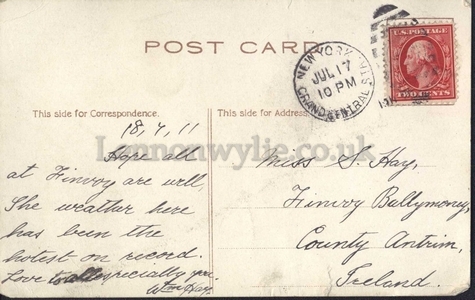 POST CARD
NEW YORK, N.Y. STA.
GRAND CENTRAL
JUL 17
10 PM
U.S. POSTAGE
TWO CENTS
This side for Correspondence.
This side for Address.
Lennonwylie.co.uk
18,7,11
Hope all
at Finvoy are well,
The weather here
has been the
hotest on record.
Love to all especially you.
Wm Hay.
Miss S. Hay,
Finvoy Ballymoney,
County Antrim,
Ireland.